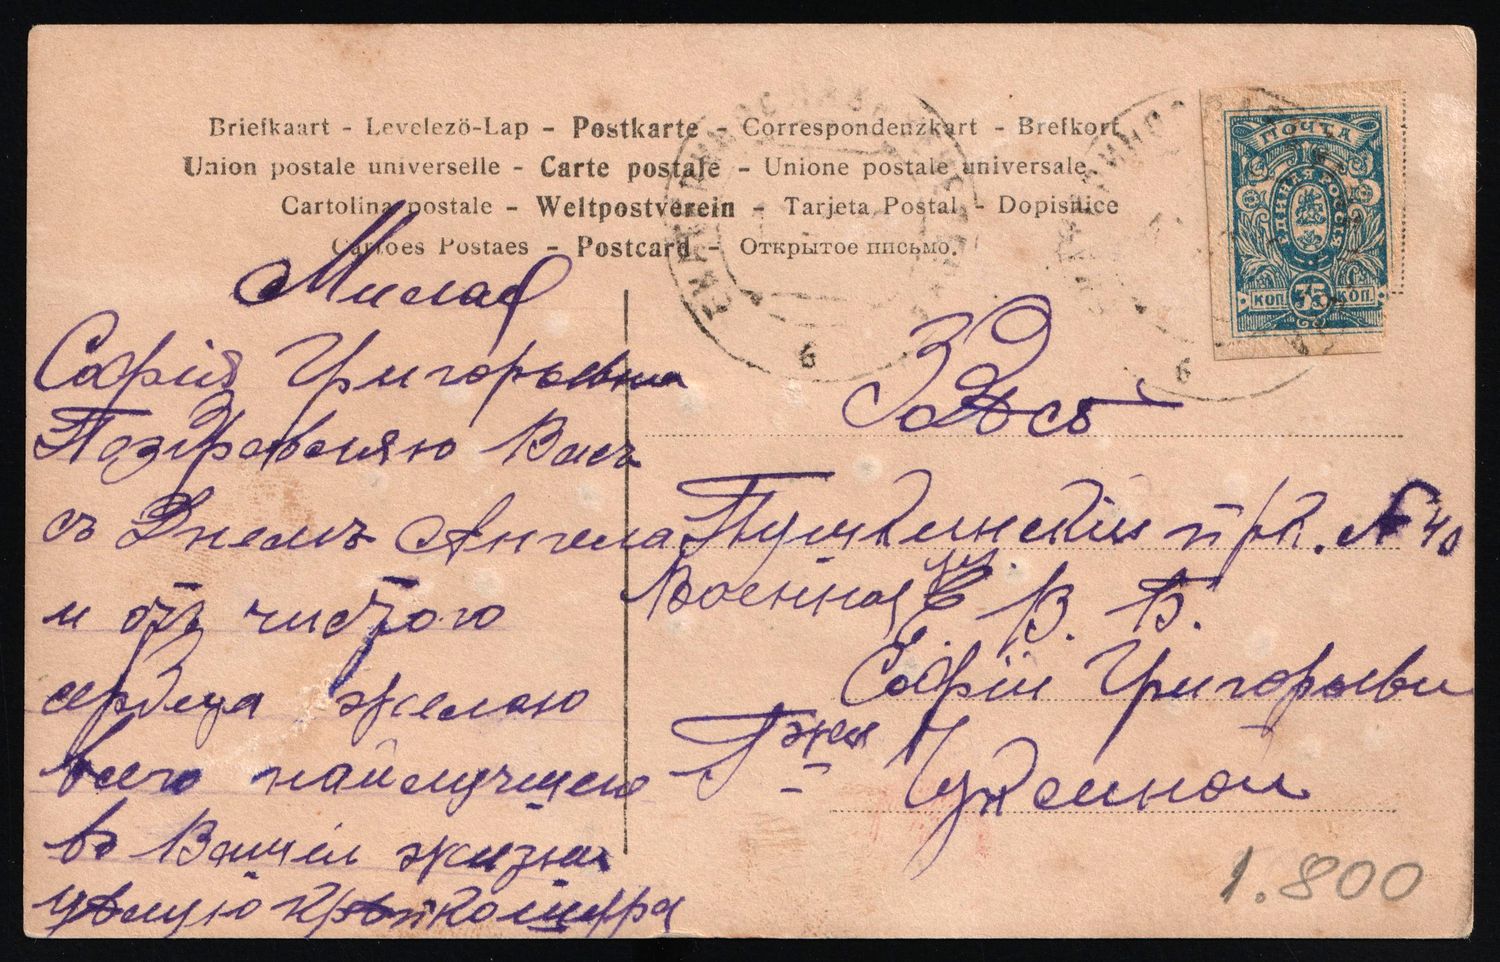 Briefkaart - Levelező-Lap - Postkarte - Correspondenzkart - Brefkort
Union postale universelle - Carte postale - Unione postale universale
Cartolina postale - Weltpostverein - Tarjeta Postal - Dopisnice
Cartoes Postaes - Postcard - Открытое письмо.
ПОЧТА
ЕДИНАЯ РОССІЯ
КОП. 35 КОП.
6
6
Милая
Софія Григорьевна
Поздравляю Васъ
съ Днемъ Ангела
и отъ чистого
сердца желаю
всего найлучшего
въ Вашей жизни
цѣлую крѣпко
Здѣсь
Пушкинскій пр. № 40
Военная
Е. В. Б.
Софіи Григорьевни
Г-жи
1.800